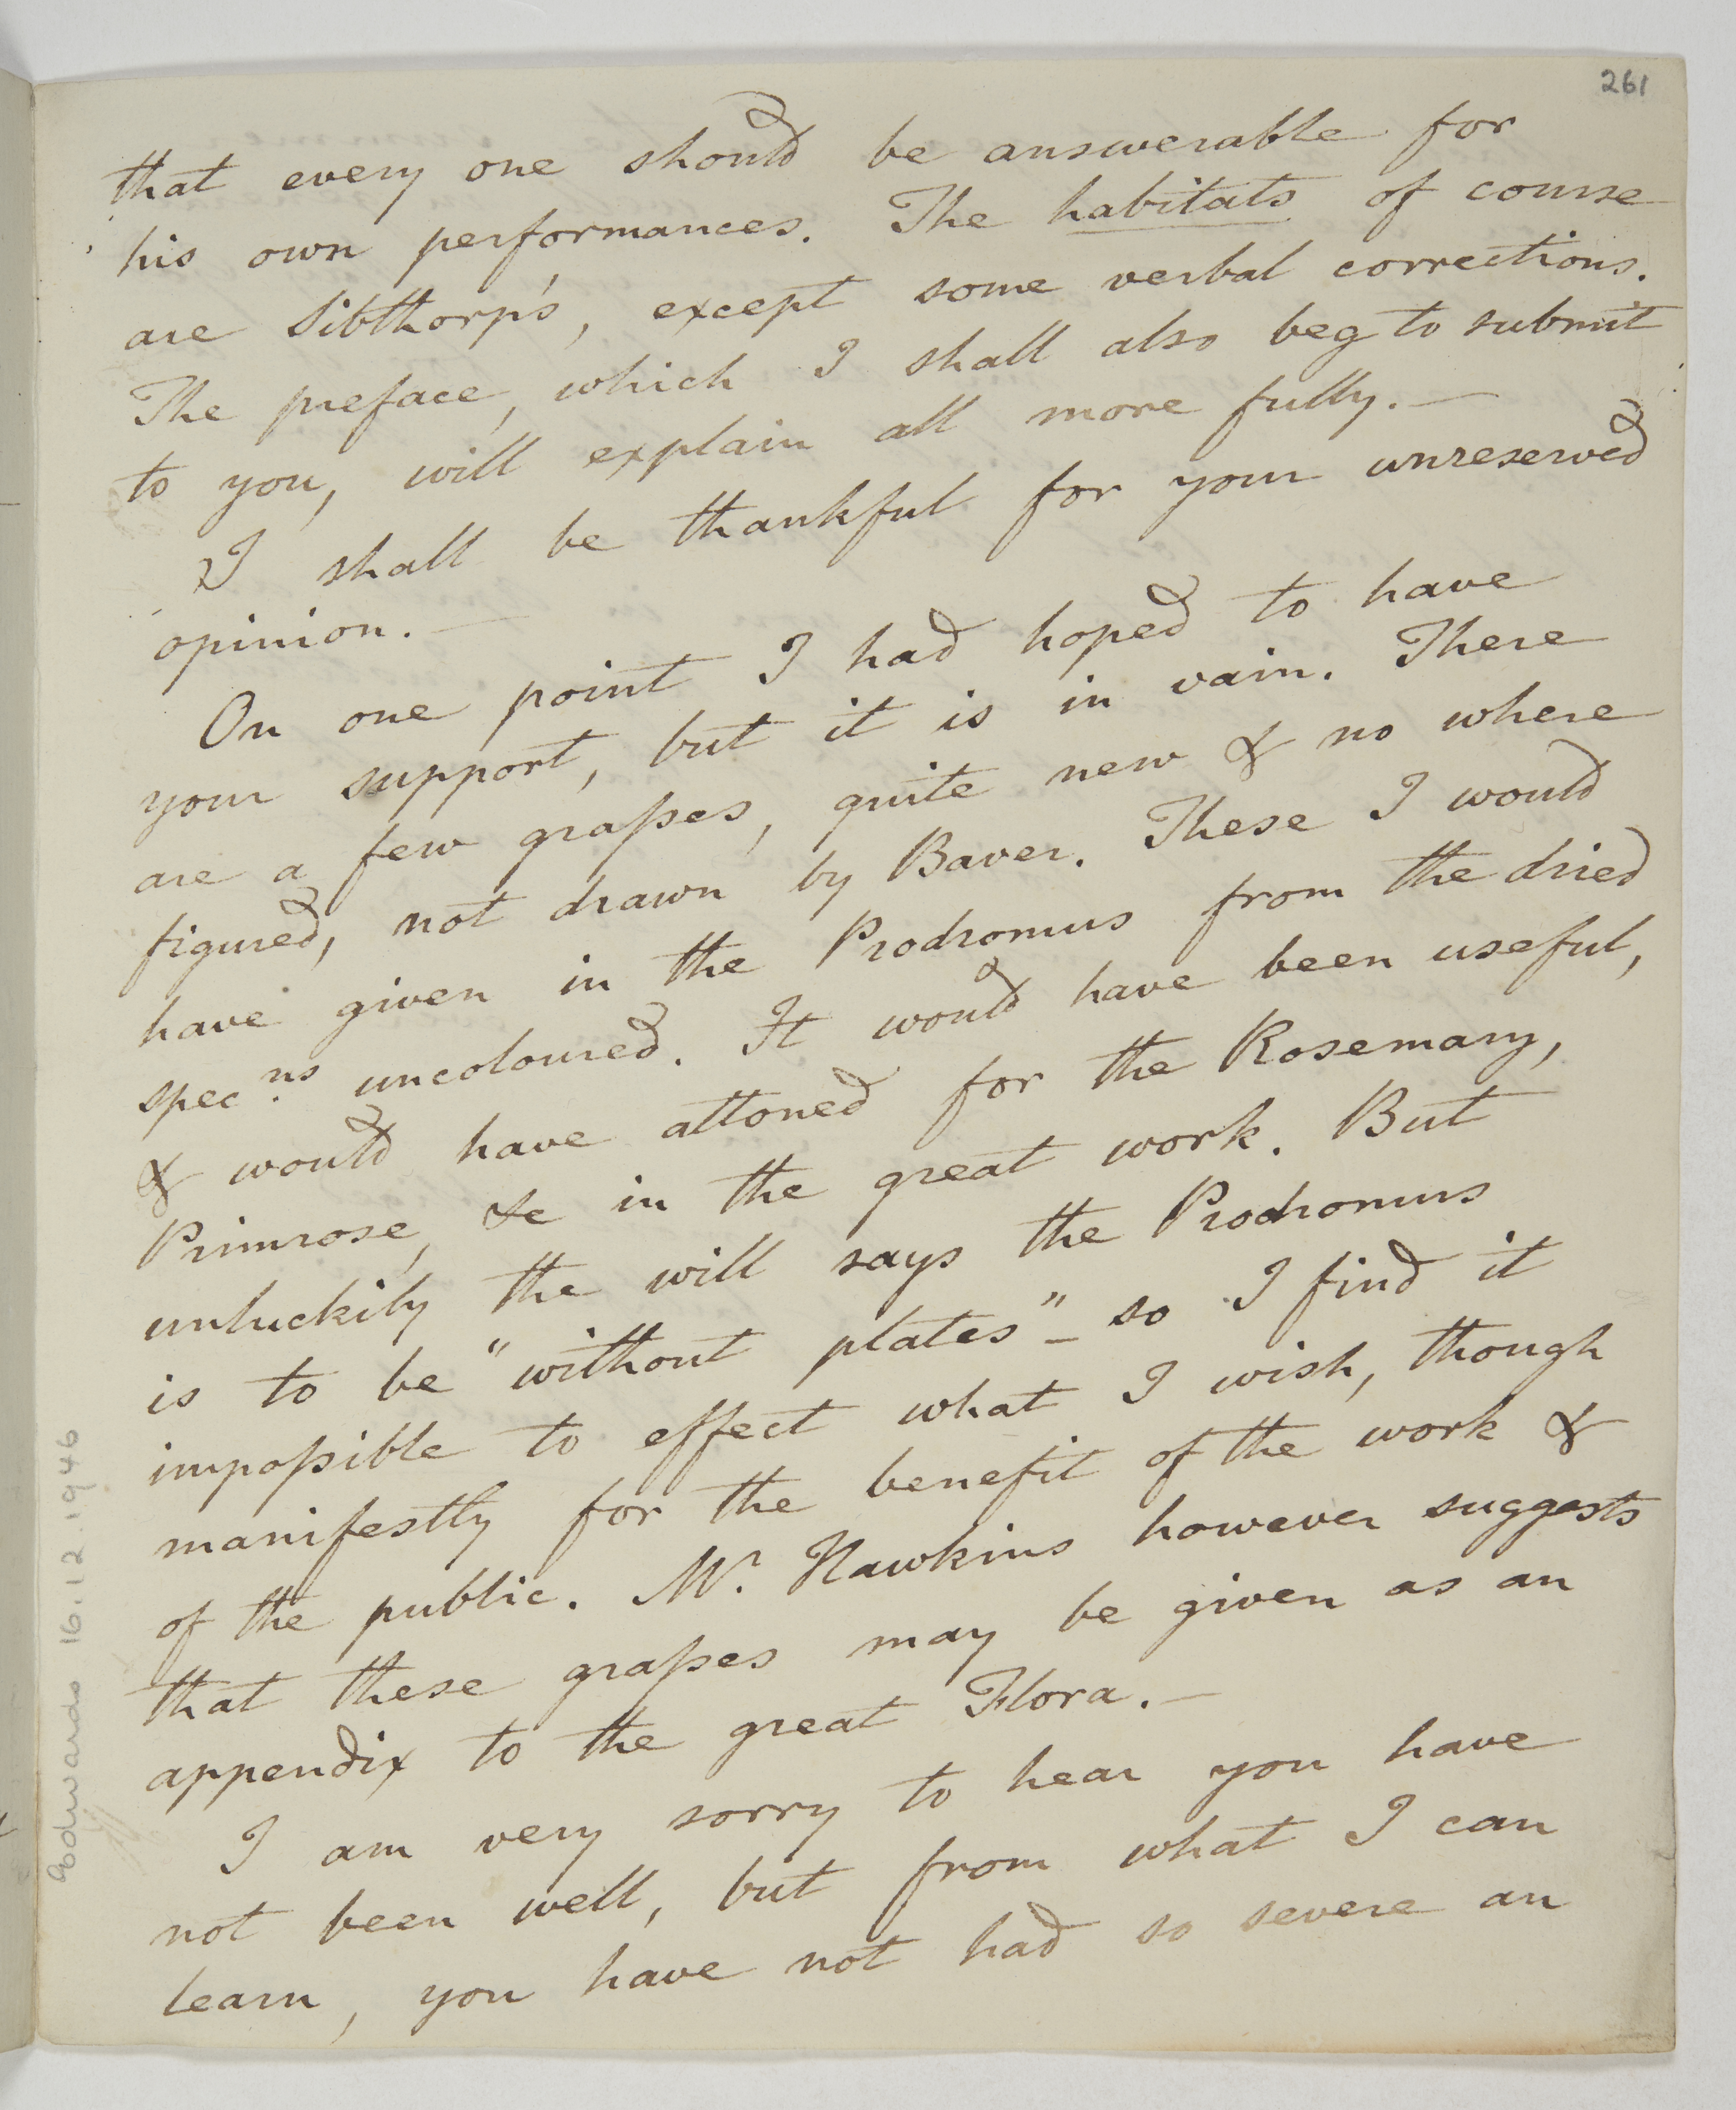 261
that every one should be answerable for
his own performances. The habitats of course
are Sibthorp's, except some verbal corrections.
The preface, which I shall also beg to submit
to you, will explain all more fully. —
I shall be thankful for your unreserved
opinion. —
On one point I had hoped to have
your support, but it is in vain. There
are a few graſses, quite new & no where
figured, not drawn by Bauer. These I would
have given in the Prodromus from the dried
spec.ns uncoloured. It would have been useful,
& would have attoned for the Rosemary,
Primrose, &c in the great work. But
unluckily the will says the Prodromus
is to be "without plates" – so I find it
impoſsible to effect what I wish, though
manifestly for the benefit of the work &
of the public. Mr. Hawkins however suggests
that these graſses may be given as an
appendix to the great Flora. —
I am very sorry to hear you have
not been well, but from what I can
learn, you have not had so severe an
Edwards 16.12.1946